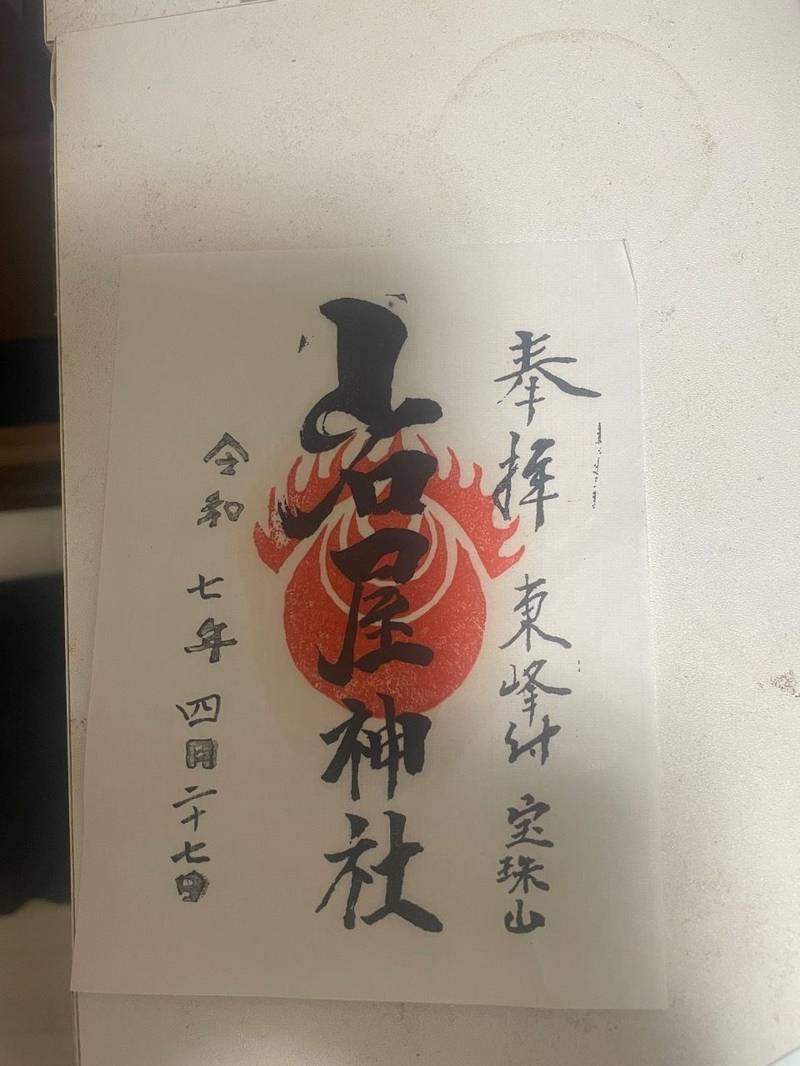 奉拝 東峰村 宝珠山
岩屋神社
令和 七年 四月二十七日